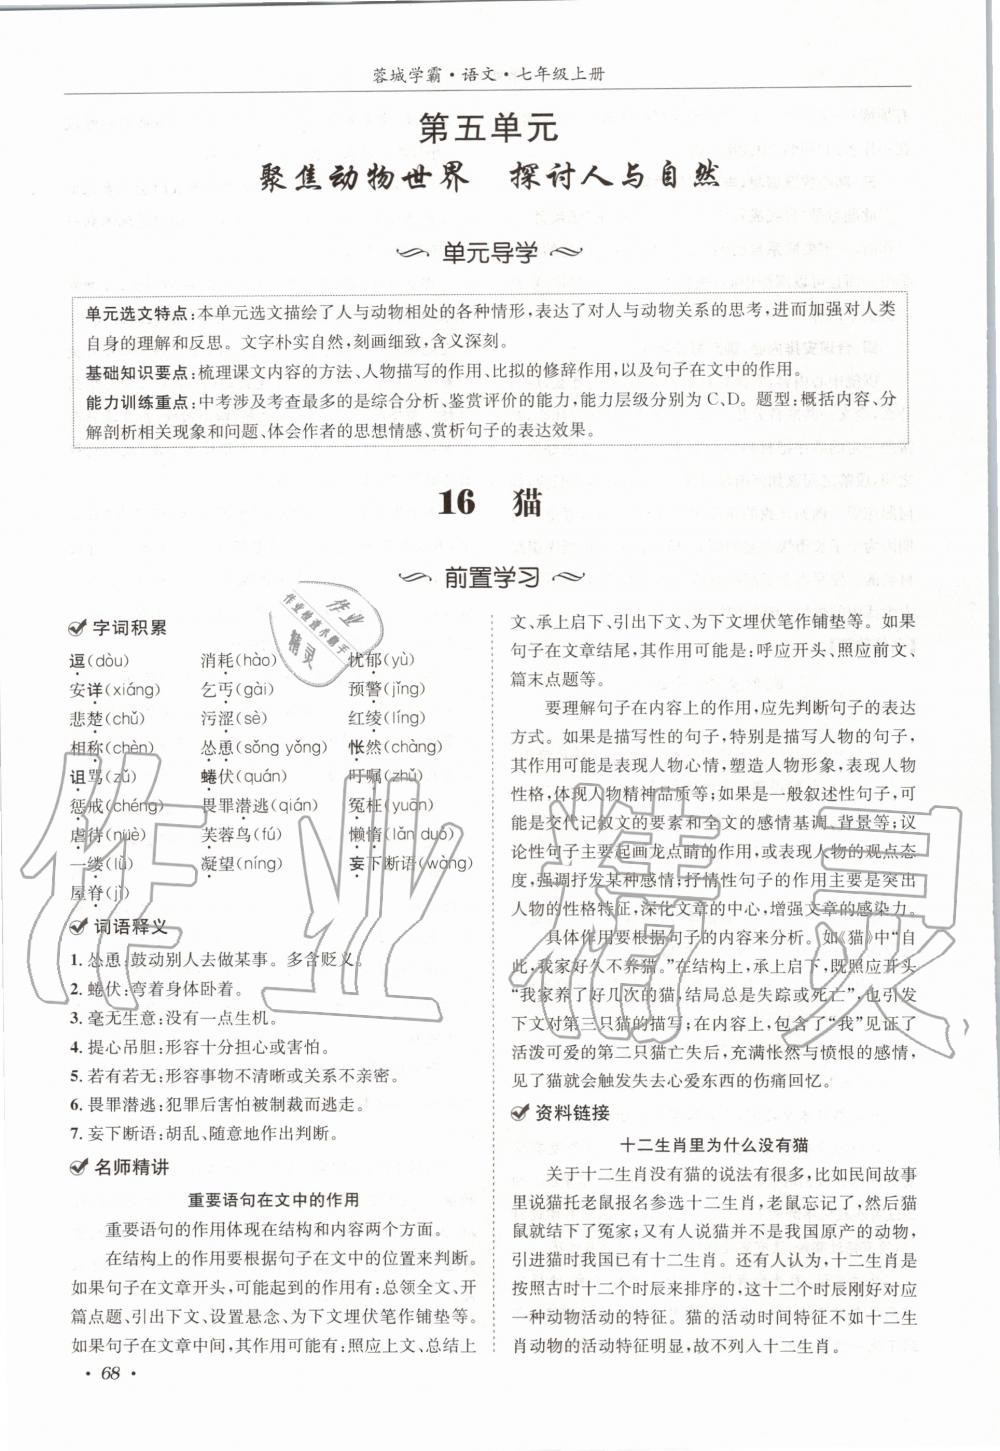 蓉城学霸·语文·七年级上册
第五单元
聚焦动物世界 探讨人与自然
单元导学
单元选文特点:本单元选文描绘了人与动物相处的各种情形,表达了对人与动物关系的思考,进而加强对人类
自身的理解和反思。文字朴实自然,刻画细致,含义深刻。
基础知识要点:梳理课文内容的方法、人物描写的作用、比拟的修辞作用,以及句子在文中的作用。
能力训练重点:中考涉及考查最多的是综合分析、鉴赏评价的能力,能力层级分别为C、D。题型:概括内容、分
解剖析相关现象和问题、体会作者的思想情感、赏析句子的表达效果。
16 猫
前置学习
字词积累
逗(dòu) 消耗(hào) 忧郁(yù)
安详(xiáng) 乞丐(gài) 预警(jǐng)
悲楚(chǔ) 污涩(sè) 红绫(líng)
相称(chèn) 怂恿(sǒng yǒng) 怅然(chàng)
诅骂(zǔ) 蜷伏(quán) 叮嘱(zhǔ)
惩戒(chéng) 畏罪潜逃(qián) 冤枉(yuān)
虐待(nüè) 芙蓉鸟(fú) 懒惰(lǎn duò)
一缕(lǚ) 凝望(níng) 妄下断语(wàng)
屋脊(jǐ)
词语释义
1. 怂恿:鼓动别人去做某事。多含贬义。
2. 蜷伏:弯着身体卧着。
3. 毫无生意:没有一点生机。
4. 提心吊胆:形容十分担心或害怕。
5. 若有若无:形容事物不清晰或关系不亲密。
6. 畏罪潜逃:犯罪后害怕被制裁而逃走。
7. 妄下断语:胡乱、随意地作出判断。
名师精讲
重要语句在文中的作用
重要语句的作用体现在结构和内容两个方面。
在结构上的作用要根据句子在文中的位置来判断。
如果句子在文章开头,可能起到的作用有:总领全文、开
篇点题、引出下文、设置悬念、为下文埋伏笔作铺垫等。
如果句子在文章中间,其作用可能有:照应上文、总结上
文、承上启下、引出下文、为下文埋伏笔作铺垫等。如果
句子在文章结尾,其作用可能是:呼应开头、照应前文、
篇末点题等。
要理解句子在内容上的作用,应先判断句子的表达
方式。如果是描写性的句子,特别是描写人物的句子,
其作用可能是表现人物心情,塑造人物形象,表现人物
性格,体现人物精神品质等;如果是一般叙述性句子,可
能是交代记叙文的要素和全文的感情基调、背景等;议
论性句子主要起画龙点睛的作用,或表现人物的观点态
度,强调抒发某种感情;抒情性句子的作用主要是突出
人物的性格特征,深化文章的中心,增强文章的感染力。
具体作用要根据句子的内容来分析。如《猫》中“自
此,我家好久不养猫。”在结构上,承上启下,既照应开头
“我家养了好几次的猫,结局总是失踪或死亡”,也引发
下文对第三只猫的描写;在内容上,包含了“我”见证了
活泼可爱的第二只猫亡失后,充满怅然与愤恨的感情,
见了猫就会触发失去心爱东西的伤痛回忆。
资料链接
十二生肖里为什么没有猫
关于十二生肖没有猫的说法有很多,比如民间故事
里说猫托老鼠报名参选十二生肖,老鼠忘记了,然后猫
鼠就结下了冤家;又有人说猫并不是我国原产的动物,
引进猫时我国已有十二生肖。还有人认为,十二生肖是
按照古时十二个时辰来排序的,这十二个时辰刚好对应
一种动物活动的特征。猫的活动时间特征不如十二生
肖动物的活动特征明显,故不列入十二生肖。
· 68 ·
作业
作业检查小助手
精灵
作业精灵